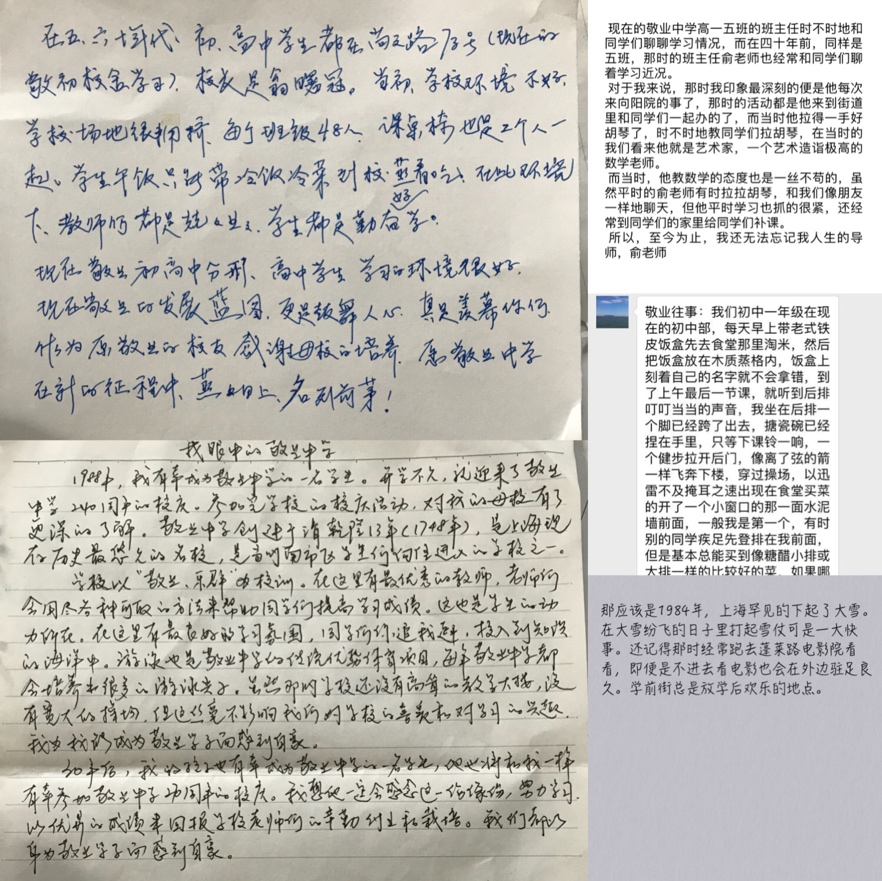 在五、六十年代、初、高中学生都在尚文路73号（现在的
敬初校舍学习）。校长是翁曙冠。当初、学校环境不好、
学校场地很拥挤、每个班级48人、课桌椅也是2个人一
起。学生午饭只能带冷饭冷菜到校蒸着吃、在此环境
下、教师们都是兢兢业业、学生都是勤奋好学。
现在敬业初高中分开、高中学生学习的环境很好、
现在敬业的发展蓝图、更是鼓舞人心、真是羡慕你们
作为原敬业的校友感谢母校的培养、愿敬业中学
在新的征程中、蒸蒸日上、名列前茅！
我眼中的敬业中学
1988年，我有幸成为敬业中学的一名学生。开学不久，就迎来了敬业
中学240周年的校庆。参加完学校的校庆活动，对我的母校有了
更深的了解。敬业中学创建于清乾隆13年（1748年），是上海现
存历史最悠久的名校，是当时南市区学生们向往进入的学校之一。
学校以“敬业、乐群”为校训。在这里有最优秀的教师，老师们
会用尽各种可取的方法来帮助同学们提高学习成绩。这也是学生的动
力所在。在这里有最良好的学习氛围，同学们你追我赶，投入到知识
的海洋中。游泳也是敬业中学的传统优势体育项目，每年敬业中学都
会培养出很多的游泳尖子。虽然那时学校还没有高耸的教学大楼，没
有宽大的操场，但这丝毫不影响我们对学校的喜爱和对学习的兴趣。
我为我能成为敬业学子而感到自豪。
30年后，我的孩子也有幸成为敬业中学的一名学生，他也将和我一样
有幸参加敬业中学270周年的校庆。我想他一定会感念这一份缘份，努力学习，
以优异的成绩来回报学校老师们的辛勤付出和栽培。我们都以
身为敬业学子而感到自豪。
现在的敬业中学高一五班的班主任时不时地和
同学们聊聊学习情况，而在四十年前，同样是
五班，那时的班主任俞老师也经常和同学们聊
着学习近况。
对于我来说，那时我印象最深刻的便是他每次
来向阳院的事了，那时的活动都是他来到街道
里和同学们一起办的了，而当时他拉得一手好
胡琴了，时不时地教同学们拉胡琴，在当时的
我们看来他就是艺术家，一个艺术造诣极高的
数学老师。
而当时，他教数学的态度也是一丝不苟的，虽
然平时的俞老师有时拉拉胡琴，和我们像朋友
一样地聊天，但他平时学习也抓的很紧，还经
常到同学们的家里给同学们补课。
所以，至今为止，我还无法忘记我人生的导
师，俞老师
敬业往事：我们初中一年级在现
在的初中部，每天早上带老式铁
皮饭盒先去食堂那里淘米，然后
把饭盒放在木质蒸格内，饭盒上
刻着自己的名字就不会拿错，到
了上午最后一节课，就听到后排
叮叮当当的声音，我坐在后排一
个脚已经跨了出去，搪瓷碗已经
捏在手里，只等下课铃一响，一
个健步拉开后门，像离了弦的箭
一样飞奔下楼，穿过操场，以迅
雷不及掩耳之速出现在食堂买菜
的开了一个小窗口的那一面水泥
墙前面，一般我是第一个，有时
别的同学疾足先登排在我前面，
但是基本总能买到像糖醋小排或
大排一样的比较好的菜，如果哪
那应该是1984年，上海罕见的下起了大雪。
在大雪纷飞的日子里打起雪仗可是一大快
事。还记得那时经常跑去蓬莱路电影院看
看，即便是不进去看电影也会在外边驻足良
久。学前街总是放学后欢乐的地点。